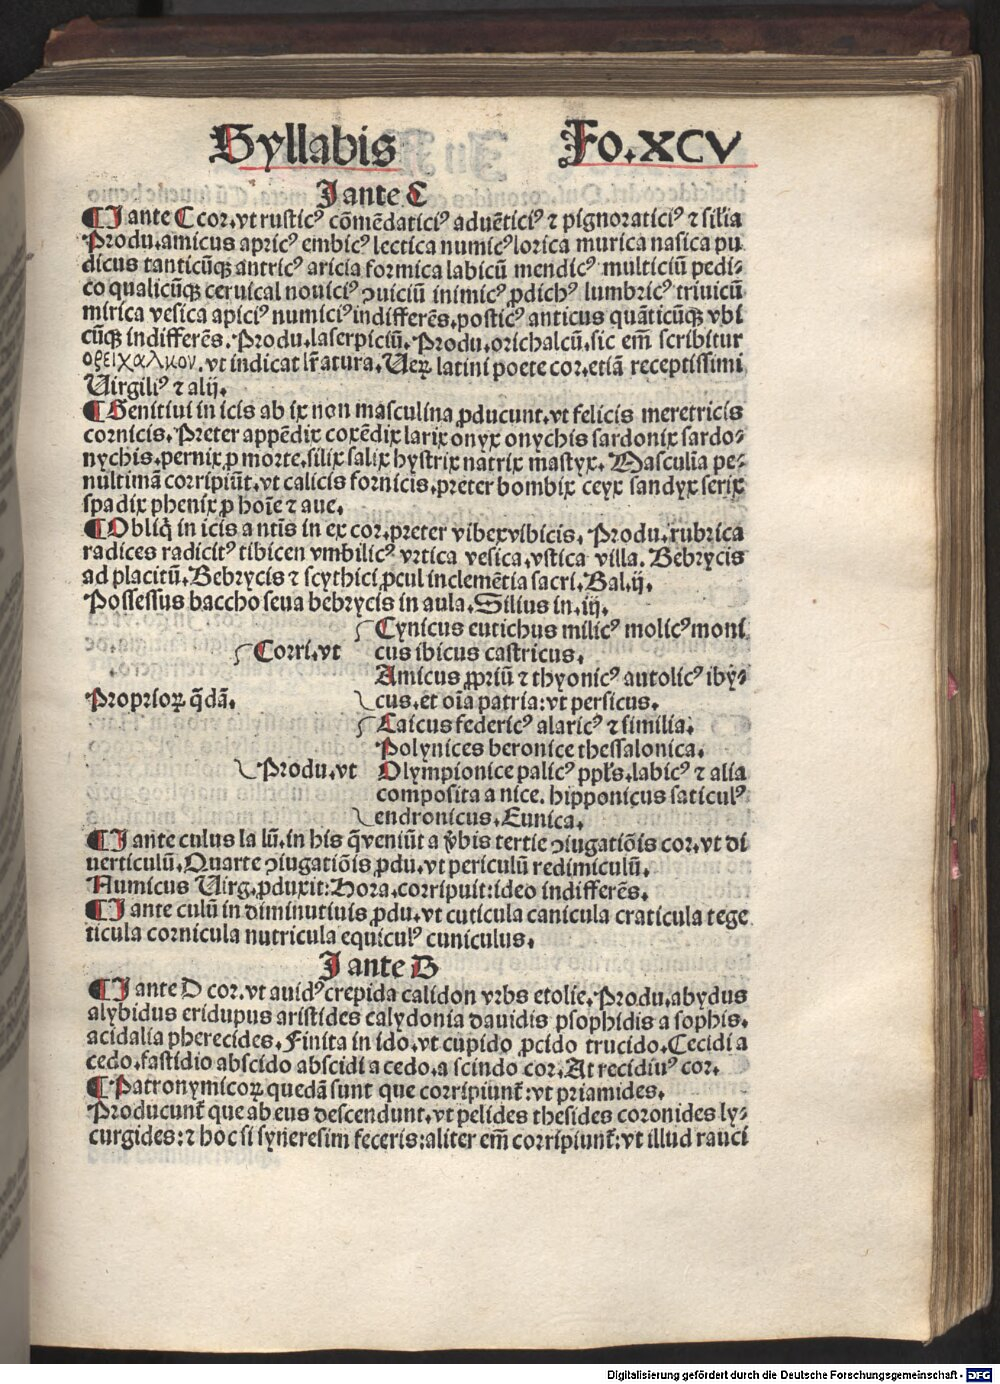 Syllabis Fo.XCV
I ante C
¶I ante C cor. vt rusticꝰ cōmēdaticiꝰ aduēticiꝰ ⁊ pignoraticiꝰ ⁊ sil'ia
Produ. amicus apricꝰ embicꝰ lectica numicꝰ lorica murica nasica pu
dicus tanticūqꝫ antricꝰ aricia formica labicū mendicꝰ multiciū pedi⸗
co qualicūqꝫ ceruical nouiciꝰ ↄuiciū inimicꝰ ꝓdichꝰ lumbricꝰ triuicū
mirica vesica apiciꝰ numiciꝰ indifferēs. posticꝰ anticus quāticūqꝫ vbi
cūqꝫ indifferēs. Produ. laserpiciū. Produ. orichalcū. sic em̄ scribitur
ορειχαλκον. vt indicat lr̄atura. Ueꝝ latini poete cor. etiā receptissimi
Uirgiliꝰ ⁊ alij.
¶Genitiui in icis ab ix non masculina ꝓducunt. vt felicis meretricis
cornicis. Preter appēdix coxēdix larix onyx onychis sardonix sardo⸗
nychis. pernix ꝓ morte. silix salix hystrix natrix mastyx. Masculīa pe⸗
nultimā corripiūt. vt calicis fornicis. preter bombix ceyx sandyx serix
spadix phenix ꝓ hoīe ⁊ aue.
¶Obliq̄ in icis a ntīs in ex cor. preter vibex vibicis. Produ. rubrica
radices radicitꝰ tibicen vmbilicꝰ vrtica vesica. vstica villa. Bebrycis
ad placitū. Bebrycis ⁊ scythici ꝓcul inclemētia sacri. Bal. ij.
Possessus baccho seua bebrycis in aula. Silius in. iij.
Cynicus eutichus milicꝰ molicꝰ moni
Corri. vt cus ibicus castricus.
Amicus ꝓpriū ⁊ thyonicꝰ autolicꝰ iby⸗
Proprioꝝ q̄dā. cus. et oīa patria: vt persicus.
Laicus federicꝰ alaricꝰ ⁊ similia.
Polynices beronice thessalonica.
Produ. vt Olympionice palicꝰ ppl's. labicꝰ ⁊ alia
composita a nice. hipponicus saticulꝰ
endronicus. Eunica.
¶I ante culus la lū. in his q̄ veniūt a v̄bis tertie ↄiugatiōis cor. vt di
uerticulū. Quarte ↄiugatiōis ꝓdu. vt periculū redimiculū.
Numicus Uirg. ꝓduxit: Hora. corripuit: ideo indifferēs.
¶I ante culū in diminutiuis ꝓdu. vt cuticula canicula craticula tege
ticula cornicula nutricula equiculꝰ cuniculus.
I ante D
¶I ante D cor. vt auidꝰ crepida calidon vrbs etolie. Produ. abydus
alybidus eridupus aristides calydonia dauidis psophidis a sophis.
acidalia pherecides. Finita in ido. vt cupido ꝓcido trucido. Cecidi a
cedo. fastidio abscido abscidi a cedo. a scindo cor. At recidiuꝰ cor.
¶Patronymicoꝝ quedā sunt que corripiunt̄: vt priamides.
Producunt̄ que ab eus descendunt. vt pelides thesides coronides ly⸗
curgides: ⁊ hoc si syneresim feceris: aliter em̄ corripiunt̄: vt illud rauci
Digitalisierung gefördert durch die Deutsche Forschungsgemeinschaft - DFG